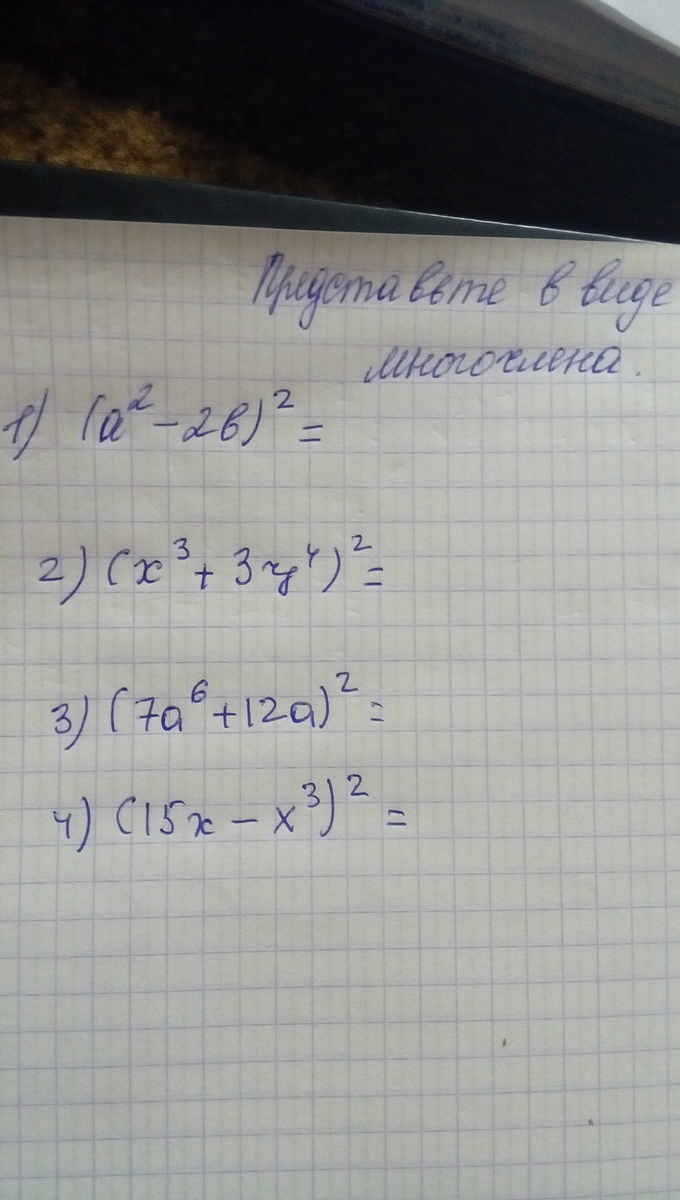 Представьте в виде
многочлена.
1) (a² - 2b)² =
2) (x³ + 3y⁴)² =
3) (7a⁶ + 12a)² =
4) (15x - x³)² =